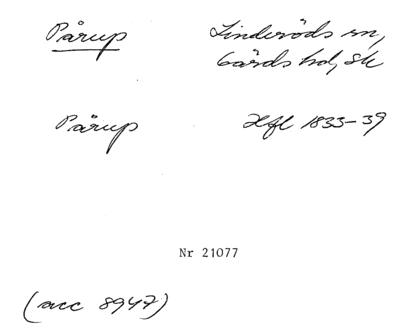 Pårup Linderöds sn,
Gärds hd, Sk
Pårup Hfl 1833-39
Nr 21077
(acc 8947)